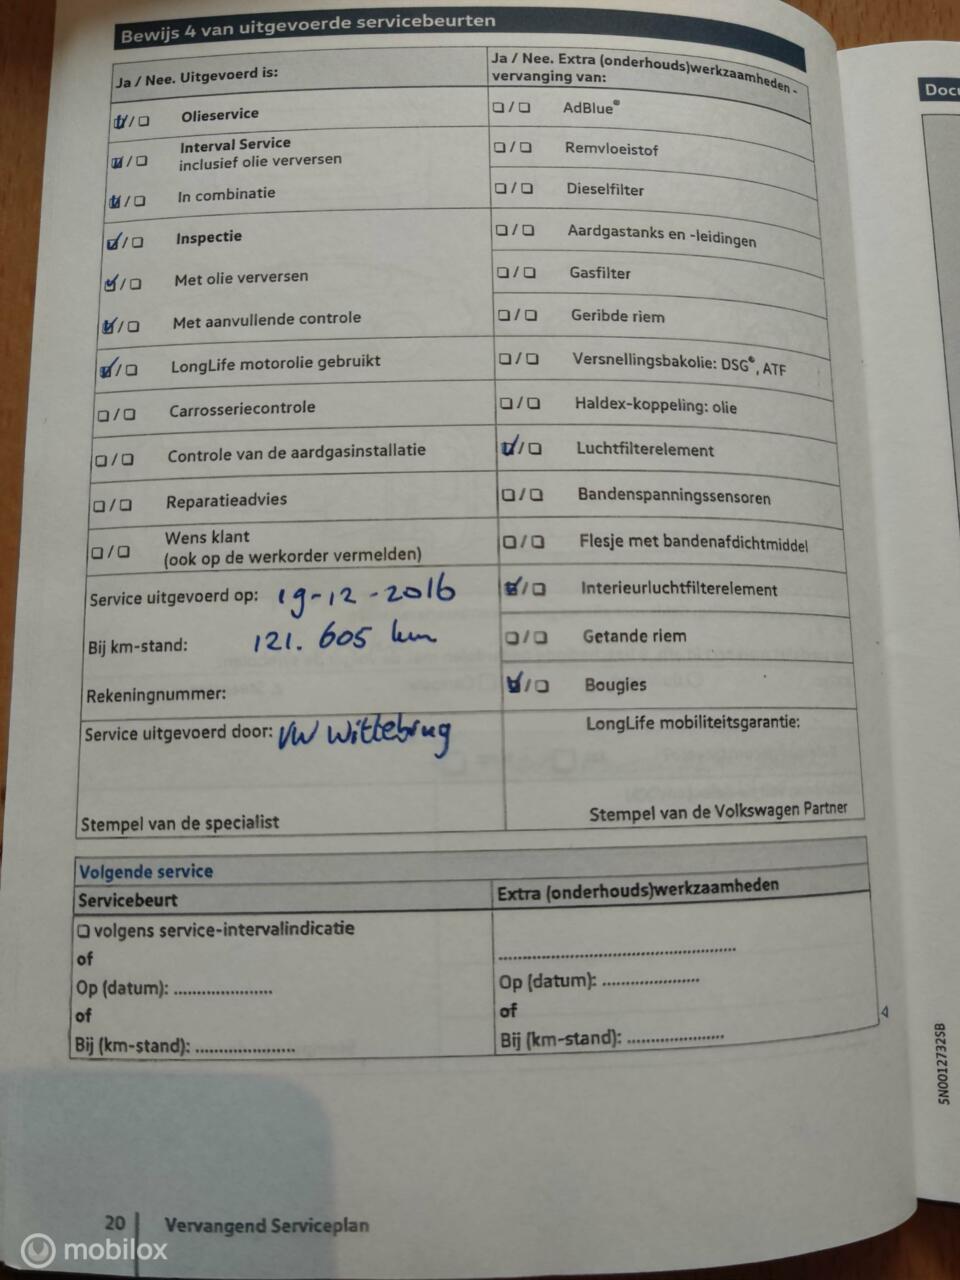 Bewijs 4 van uitgevoerde servicebeurten
Ja / Nee. Uitgevoerd is:
☑/☐ Olieservice
☑/☐ Interval Service
inclusief olie verversen
☑/☐ In combinatie
☑/☐ Inspectie
☑/☐ Met olie verversen
☑/☐ Met aanvullende controle
☑/☐ LongLife motorolie gebruikt
☐/☐ Carrosseriecontrole
☐/☐ Controle van de aardgasinstallatie
☐/☐ Reparatieadvies
☐/☐ Wens klant
(ook op de werkorder vermelden)
Service uitgevoerd op: 19-12-2016
Bij km-stand: 121.605 km
Rekeningnummer:
Service uitgevoerd door: VW Wittebrug
Stempel van de specialist
Ja / Nee. Extra (onderhouds)werkzaamheden -
vervanging van:
☐/☐ AdBlue®
☐/☐ Remvloeistof
☐/☐ Dieselfilter
☐/☐ Aardgastanks en -leidingen
☐/☐ Gasfilter
☐/☐ Geribde riem
☐/☐ Versnellingsbakolie: DSG®, ATF
☐/☐ Haldex-koppeling: olie
☑/☐ Luchtfilterelement
☐/☐ Bandenspanningssensoren
☐/☐ Flesje met bandenafdichtmiddel
☑/☐ Interieurluchtfilterelement
☐/☐ Getande riem
☑/☐ Bougies
LongLife mobiliteitsgarantie:
Stempel van de Volkswagen Partner
Volgende service
Servicebeurt
☐ volgens service-intervalindicatie
of
Op (datum): .....................
of
Bij (km-stand): .....................
Extra (onderhouds)werkzaamheden
..................................................
Op (datum): .....................
of
Bij (km-stand): .....................
20 Vervangend Serviceplan
5N0012732SB
mobilox